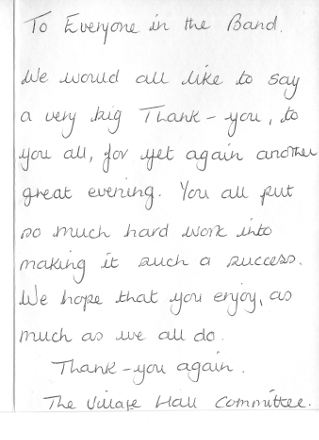 To Everyone in the Band.
We would all like to say
a very big Thank-you, to
you all, for yet again another
great evening. You all put
so much hard work into
making it such a success.
We hope that you enjoy, as
much as we all do.
Thank-you again.
The Village Hall Committee.